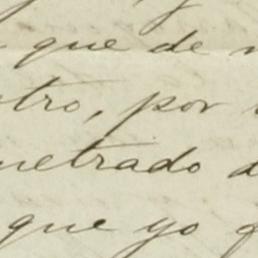 que de
stro, por
netrado d
que yo